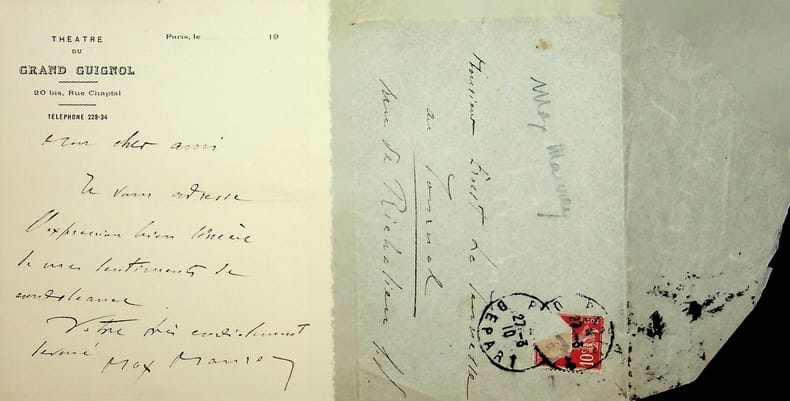 THÉATRE
DU
GRAND GUIGNOL
20 bis, Rue Chaptal
TÉLÉPHONE 228-34
Paris, le 19
Mon cher ami
Je vous adresse
l'expression bien sincère
de mes sentiments de
condoléance
Votre très cordialement
Max Maurey
Max Maurey
Monsieur Ernest
au Journal
rue de Richelieu
DEPART
27-8
10
10